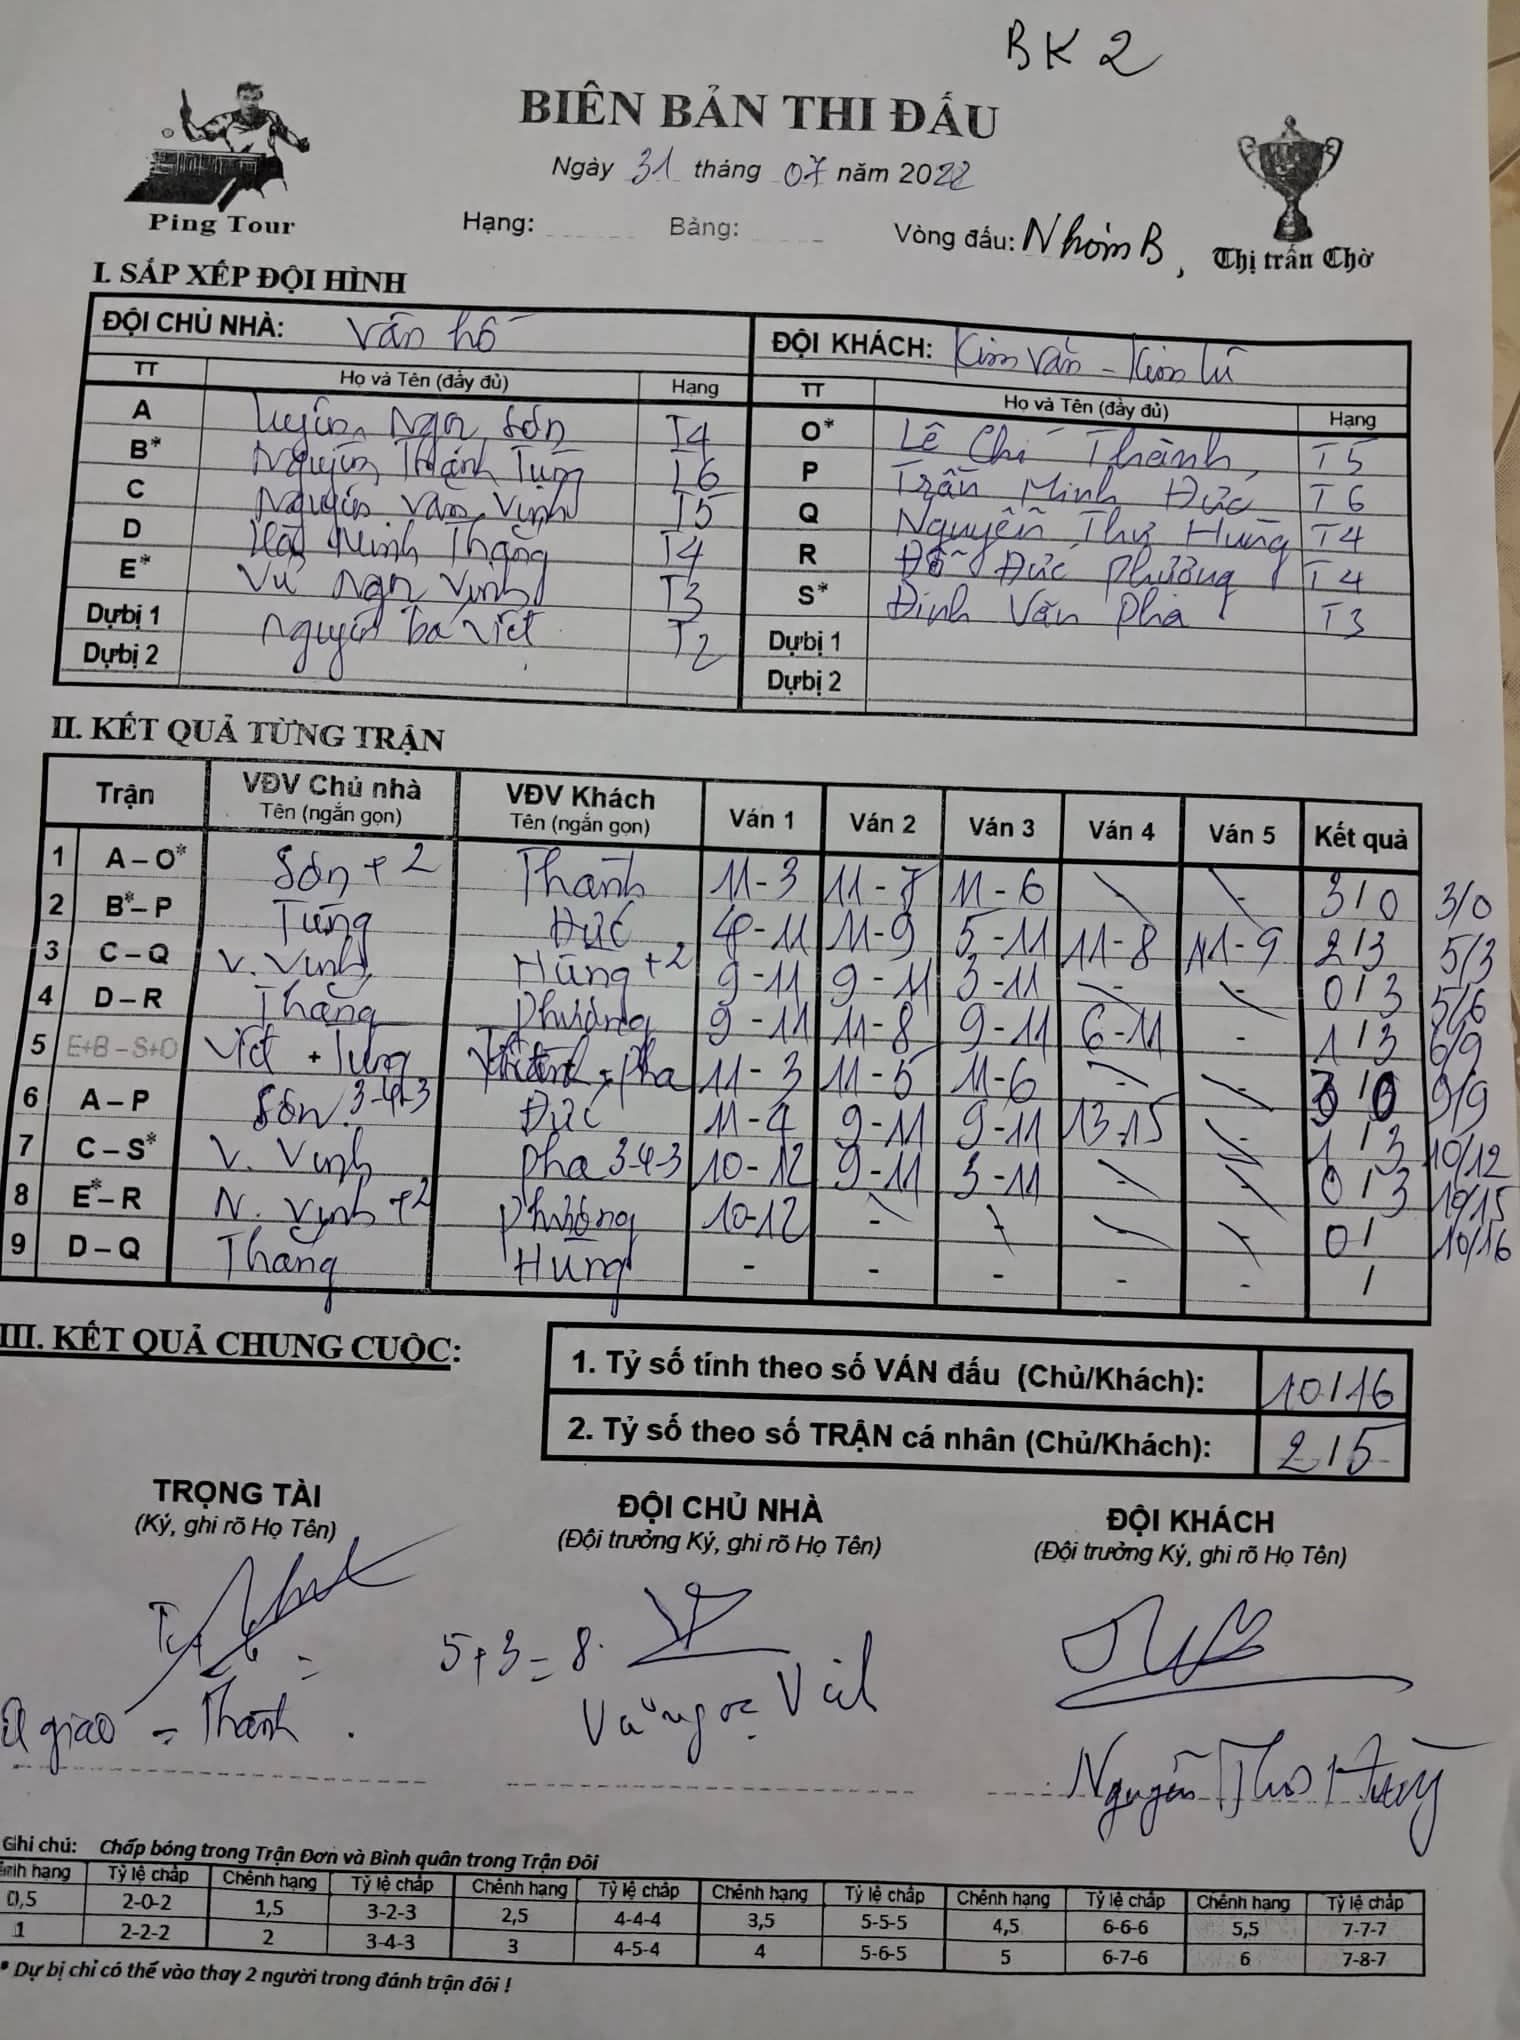 BK2
BIÊN BẢN THI ĐẤU
Ngày 31 tháng 07 năm 2022
Ping Tour
Hạng: Bảng: Vòng đấu: Nhóm B, Thị trấn Chờ
I. SẮP XẾP ĐỘI HÌNH
ĐỘI CHỦ NHÀ: Văn hố ĐỘI KHÁCH: Kim Văn - Kim Lũ
TT Họ và Tên (đầy đủ) Hạng TT Họ và Tên (đầy đủ) Hạng
A Ngọc Sơn T4 O* Lê Chí Thành T5
B* Nguyễn Thanh Tùng T6 P Trần Minh Đức T6
C Nguyễn Văn Vinh T5 Q Nguyễn Thọ Hùng T4
D Minh Thắng T4 R Đỗ Đức Phương T4
E* Vũ Ngọc Vinh T3 S* Đinh Văn Pha T3
Dự bị 1 Nguyễn bá Việt T2 Dự bị 1
Dự bị 2 Dự bị 2
II. KẾT QUẢ TỪNG TRẬN
Trận VĐV Chủ nhà VĐV Khách Ván 1 Ván 2 Ván 3 Ván 4 Ván 5 Kết quả
Tên (ngắn gọn) Tên (ngắn gọn)
1 A – O* Sơn + 2 Thành 11 - 3 11 - 7 11 - 6 - - 3 / 0 3/0
2 B* – P Tùng Đức 4 - 11 11 - 9 5 - 11 11 - 8 11 - 9 2 / 3 5/3
3 C – Q V. Vinh Hùng +2 9 - 11 9 - 11 3 - 11 - - 0 / 3 5/6
4 D – R Thắng Phương 9 - 11 11 - 8 9 - 11 6 - 11 - 1 / 3 6/9
5 E+B – S+O Việt + Tùng Thành + Pha 11 - 3 11 - 5 11 - 6 - - 3 / 0 9/9
6 A – P Sơn 3-4-3 Đức 11 - 4 9 - 11 9 - 11 13 - 15 - 1 / 3 10/12
7 C – S* V. Vinh Pha 3-4-3 10 - 12 9 - 11 3 - 11 - - 0 / 3 10/15
8 E* – R N. Vinh +2 Phương 10-12 - - - - 0 / 10/16
9 D – Q Thắng Hùng - - - - - /
III. KẾT QUẢ CHUNG CUỘC:
1. Tỷ số tính theo số VÁN đấu (Chủ/Khách): 10 / 16
2. Tỷ số theo số TRẬN cá nhân (Chủ/Khách): 2 / 5
TRỌNG TÀI ĐỘI CHỦ NHÀ ĐỘI KHÁCH
(Ký, ghi rõ Họ Tên) (Đội trưởng Ký, ghi rõ Họ Tên) (Đội trưởng Ký, ghi rõ Họ Tên)
5+3=8.
giao = Thành. Vũ ngọc Nguyễn Thọ Hùng
Ghi chú: Chấp bóng trong Trận Đơn và Bình quân trong Trận Đôi
hạng Tỷ lệ chấp Chênh hạng Tỷ lệ chấp Chênh hạng Tỷ lệ chấp Chênh hạng Tỷ lệ chấp Chênh hạng Tỷ lệ chấp Chênh hạng Tỷ lệ chấp
0,5 2-0-2 1,5 3-2-3 2,5 4-4-4 3,5 5-5-5 4,5 6-6-6 5,5 7-7-7
1 2-2-2 2 3-4-3 3 4-5-4 4 5-6-5 5 6-7-6 6 7-8-7
* Dự bị chỉ có thể vào thay 2 người trong đánh trận đôi !